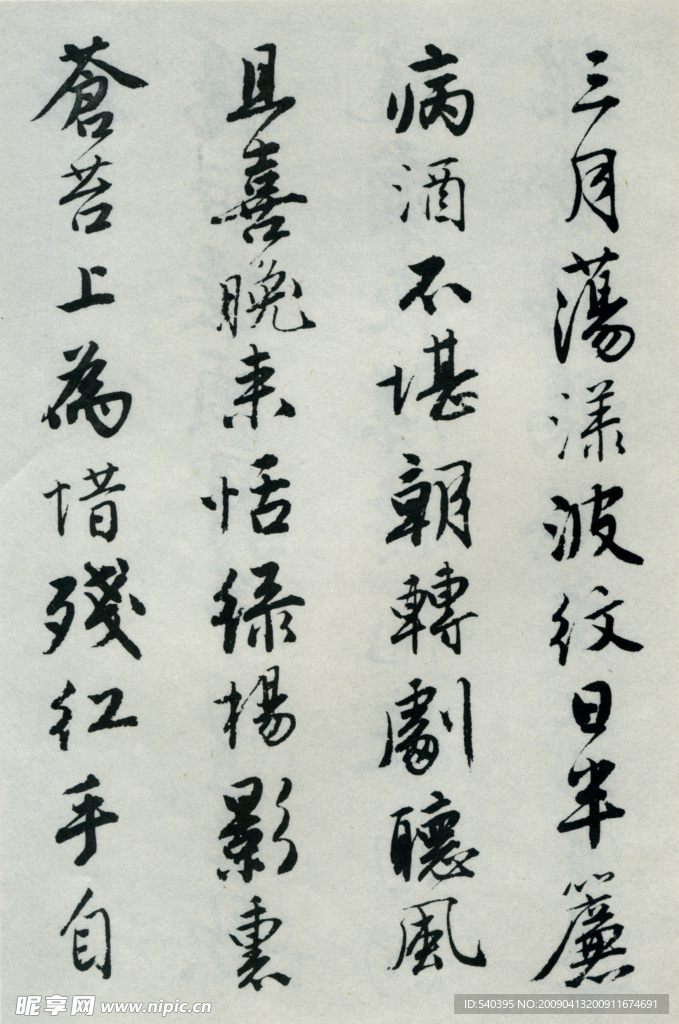 三月蕩漾波紋日半簾
病酒不堪朝轉劇聽風
且喜晚来恬綠楊影裏
蒼苔上為惜殘紅手自
昵享网 www.nipic.cn
ID:540395 NO:20090413200911674691